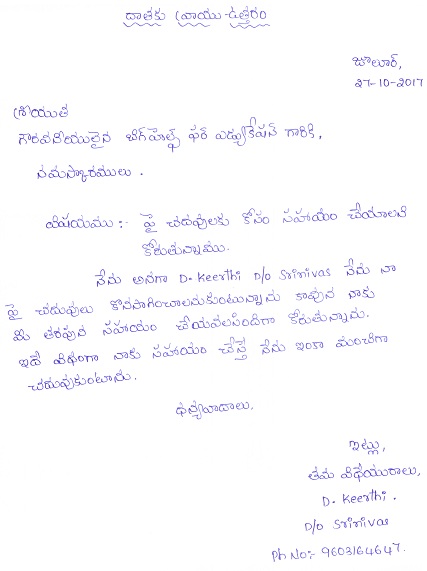 దాతకు వ్రాయు ఉత్తరం
జూలూర్,
27-10-2017
శ్రీయుత
గౌరవనీయులైన బిగ్‌హెల్ప్ ఫర్ ఎడ్యుకేషన్ గారికి,
నమస్కారములు.
విషయము :- పై చదువులకు కోసం సహాయం చేయాలని
కోరుతున్నాము.
నేను అనగా D. Keerthi D/o Srinivas నేను నా
పై చదువులు కొనసాగించాలనుకుంటున్నాను కావున నాకు
మీ తరపున సహాయం చేయవలసిందిగా కోరుతున్నాను.
ఇదే విధంగా నాకు సహాయం చేస్తే నేను ఇంకా మంచిగా
చదువుకుంటాను.
ధన్యవాదాలు.
ఇట్లు,
తమ విధేయురాలు,
D. Keerthi.
D/o Srinivas
Ph No:- 9603164647.